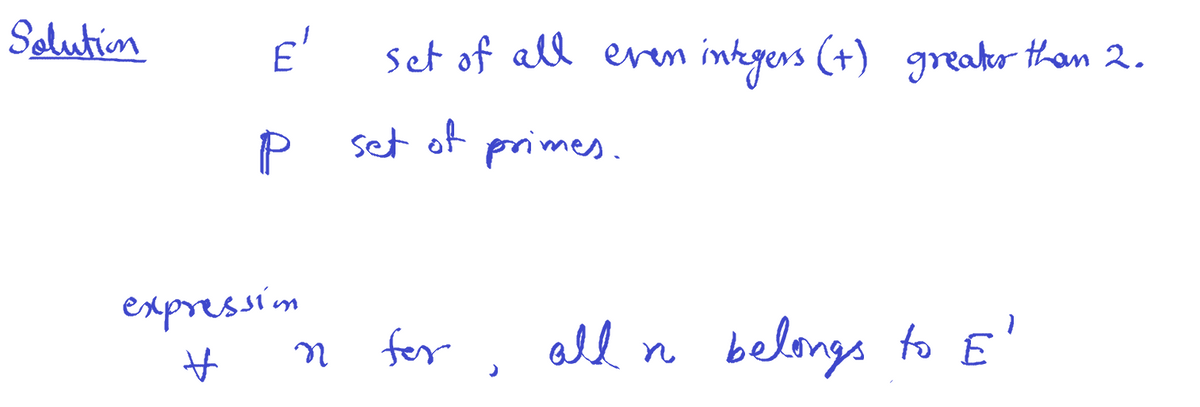 Solution E' set of all even integers (+) greater than 2.
ℙ set of primes.
expression
∀ n for, all n belongs to E'